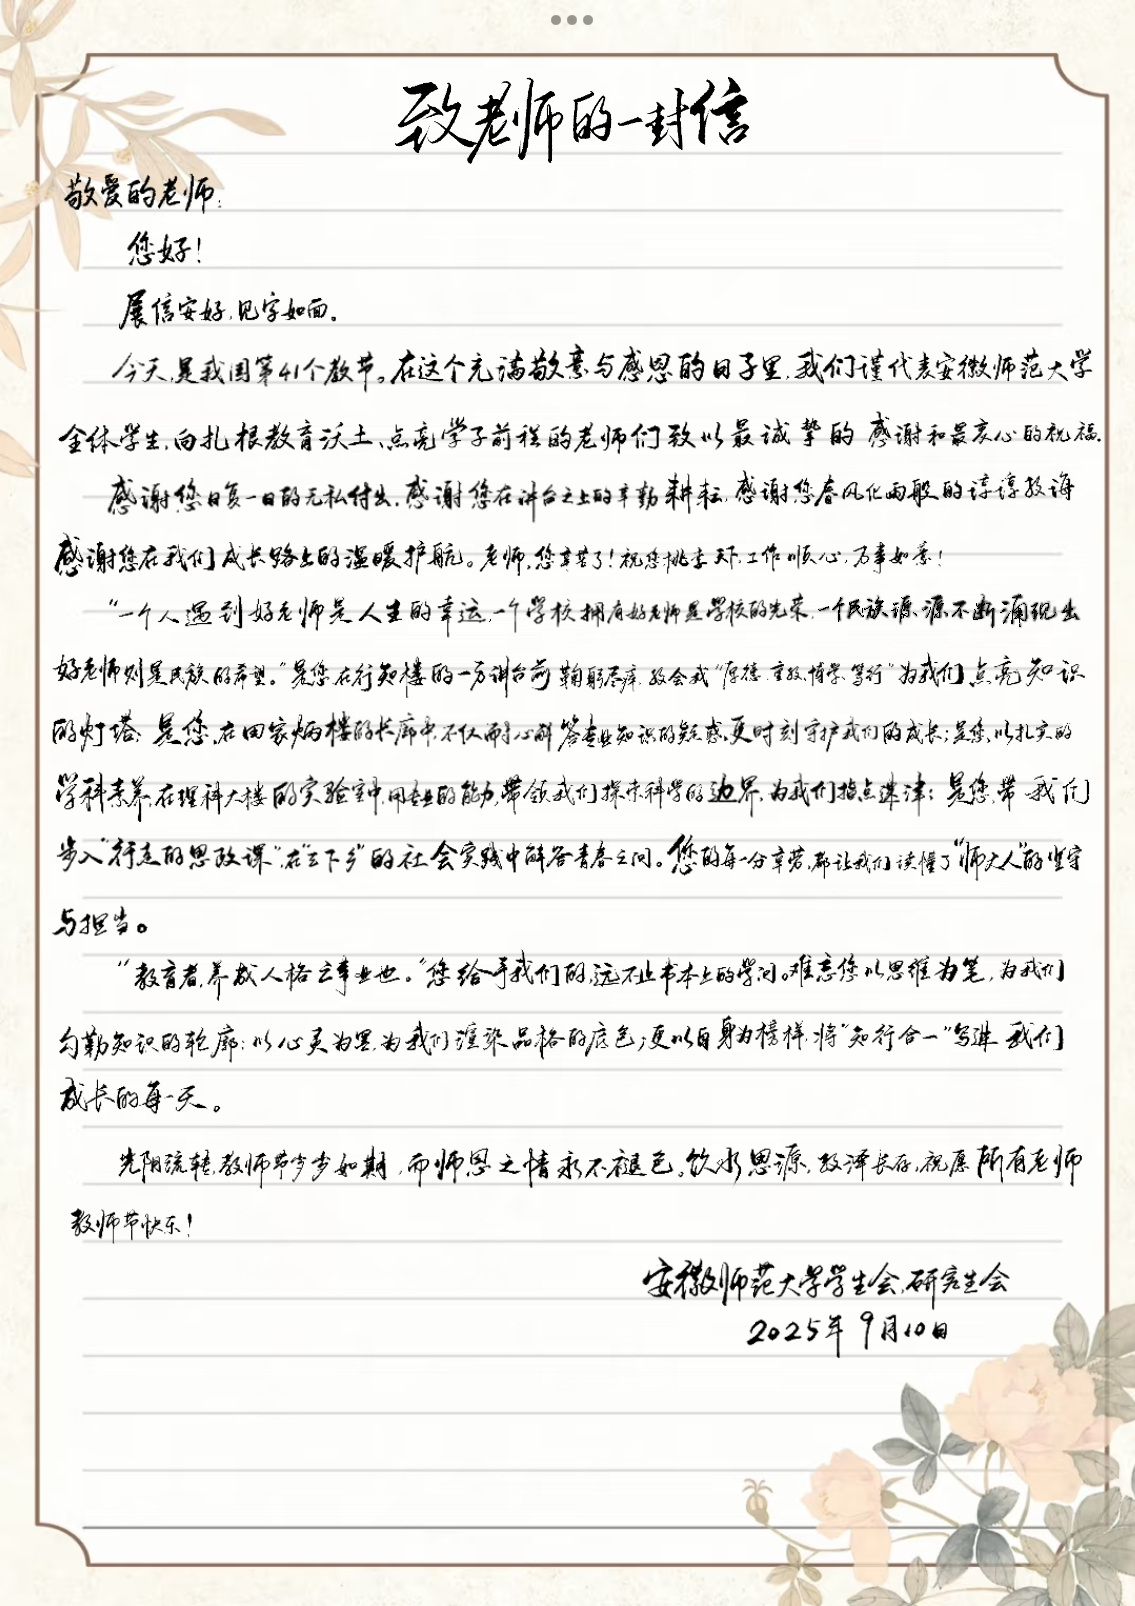 致老师的一封信
敬爱的老师：
您好！
展信安好，见字如面。
今天，是我国第41个教节。在这个充满敬意与感恩的日子里，我们谨代表安徽师范大学
全体学生，向扎根教育沃土、点亮学子前程的老师们致以最诚挚的感谢和最衷心的祝福。
感谢您日复一日的无私付出，感谢您在讲台之上的辛勤耕耘，感谢您春风化雨般的谆谆教诲
感谢您在我们成长路上的温暖护航。老师，您辛苦了！祝您桃李天下，工作顺心，万事如意！
“一个人遇到好老师是人生的幸运，一个学校拥有好老师是学校的光荣，一个民族源源不断涌现出
好老师则是民族的希望。”是您在行知楼的一方讲台前鞠躬尽瘁，教会我“厚德、重教、博学、笃行”为我们点亮知识
的灯塔；是您，在田家炳楼的长廊中，不仅耐心解答专业知识的疑惑，更时刻守护我们的成长；是您，以扎实的
学科素养，在理科大楼的实验室中，用专业的能力，带领我们探求科学的边界，为我们指点迷津；是您，带我们
步入“行走的思政课”，在“三下乡”的社会实践中解答青春之问。您的每一分辛劳，都让我们读懂了“师大人”的坚守
与担当。
“教育者，养成人格之事业也。”您给予我们的，远不止书本上的学问。难忘您以思维为笔，为我们
勾勒知识的轮廓；以心灵为墨，为我们渲染品格的底色；更以自身为榜样，将“知行合一”写进我们
成长的每一天。
光阴流转，教师节岁岁如期，而师恩之情永不褪色。饮水思源，教泽长存，祝愿所有老师
教师节快乐！
安徽师范大学学生会、研究生会
2025年9月10日